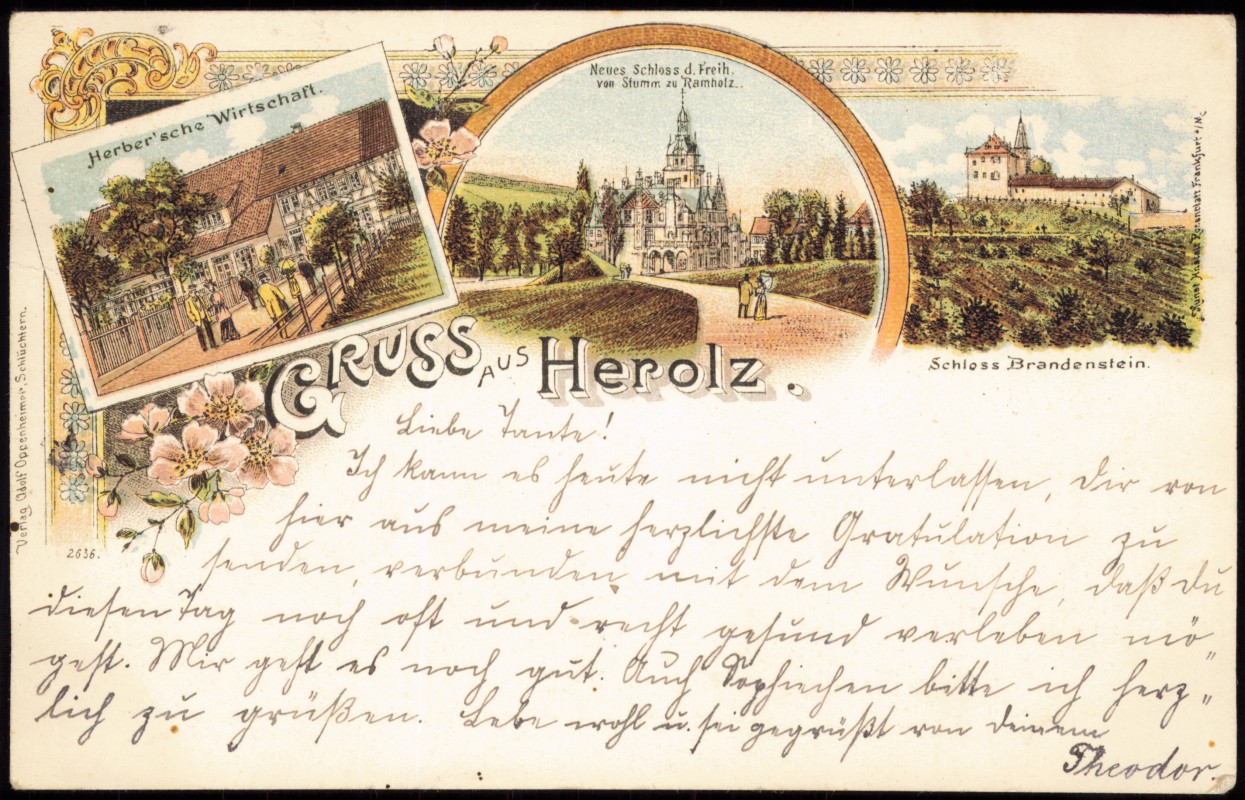 Herber'sche Wirtschaft.
Neues Schloss d. Freih.
von Stumm zu Ramholz.
Schloss Brandenstein.
Gruss aus Herolz.
Verlag Adolf Oppenheimer, Schlüchtern.
2636.
Kunstanstalt Frankfurt a/M.
Liebe Tante!
Ich kann es heute nicht unterlassen, Dir von
hier aus meine herzlichste Gratulation zu
senden, verbunden mit dem Wunsche, daß du
diesen Tag noch oft und recht gesund verleben mö„
gest. Mir geht es noch gut. Auch Sophiechen bitte ich herz„
lich zu grüßen. Lebe wohl u. sei gegrüßt von deinem
Theodor.